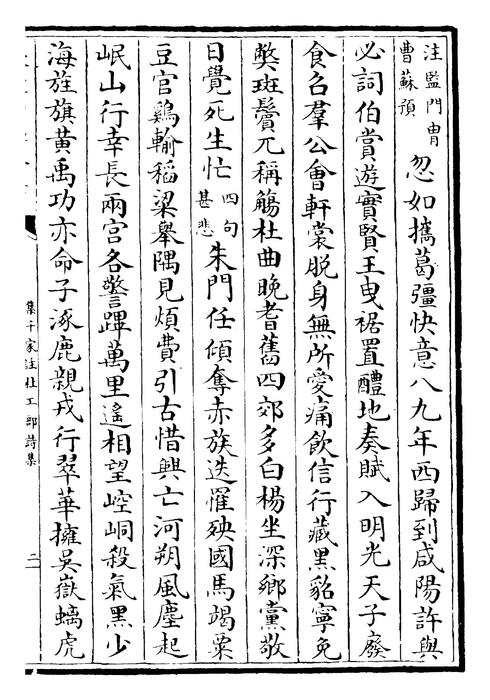 注監門胄
曹蘇預
忽如攜葛彊快意八九年西歸到咸陽許與
必詞伯賞遊實賢王曳裾置醴地奏賦入明光天子廢
食召羣公會軒裳脫身無所愛痛飲信行藏黑貂寧免
弊斑鬢兀稱觴杜曲晚耆舊四郊多白楊坐深鄉黨敬
日覺死生忙
四句
甚悲
朱門任傾奪赤族迭罹殃國馬竭粟
豆官鷄輸稻梁舉隅見煩費引古惜興亡河朔風塵起
岷山行幸長兩宮各警蹕萬里遙相望崆峒殺氣黑少
海旌旗黄禹功亦命子涿鹿親戎行翠華擁吳嶽螭虎
集千家註杜工部詩集
二